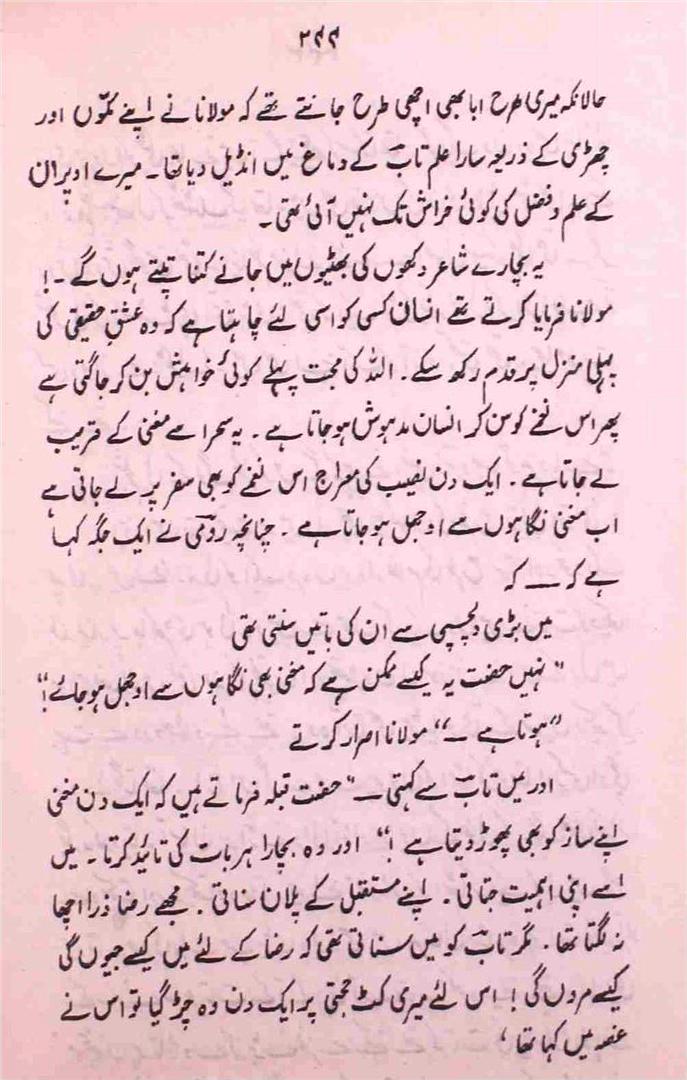 ۲۹۹
حالانکہ میری طرح ابا بھی اچھی طرح جانتے تھے کہ مولانا نے اپنے مکّوں اور
چھڑی کے ذریعہ سارا علم تابؔ کے دماغ میں انڈیل دیا تھا۔ میرے اوپر ان
کے علم و فضل کی کوئی خراش تک نہیں آئی تھی۔
یہ بچارے شاعر دکھوں کی بھٹیوں میں جانے کتنا تپتے ہوں گے۔!
مولانا فرمایا کرتے تھے انسان کسی کو اسی لئے چاہتا ہے کہ وہ عشقِ حقیقی کی
پہلی منزل پر قدم رکھ سکے۔ اللہ کی محبت پہلے کوئی خواہش بن کر جاگتی ہے
پھر اس نغمے کو سن کر انسان مدہوش ہو جاتا ہے۔ یہ سحر اسے مغنی کے قریب
لے جاتا ہے۔ ایک دن نصیب کی معراج اس نغمے کو بھی سفر پر لے جاتی ہے
اب مغنی نگاہوں سے اوجھل ہو جاتا ہے۔ چنانچہ رومیؔ نے ایک جگہ کہا
ہے کہ — کہ
میں بڑی دلچسپی سے ان کی باتیں سنتی تھی
"نہیں حضت یہ کیسے ممکن ہے کہ مغنی بھی نگاہوں سے اوجھل ہو جائے!"
"ہوتا ہے —" مولانا اصرار کرتے
اور میں تابؔ سے کہتی — "حضت قبلہ فرماتے ہیں کہ ایک دن مغنی
اپنے ساز کو بھی چھوڑ دیتا ہے!" اور وہ بچارا ہر بات کی تائید کرتا۔ میں
اسے اپنی اہمیت جتاتی۔ اپنے مستقبل کے پلان سناتی۔ مجھے رضا ذرا اچھا
نہ لگتا تھا۔ مگر تابؔ کو میں سناتی تھی کہ رضا کے لئے میں کیسے جیوں گی
کیسے مروں گی! اس لئے میری کٹ حجتی پر ایک دن وہ چڑ گیا تو اس نے
غصہ میں کہا تھا ‘